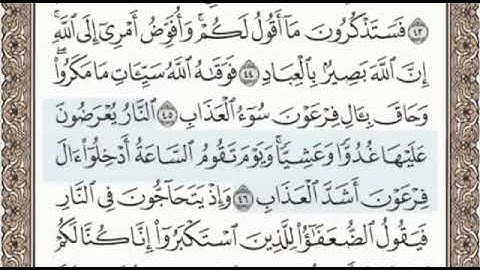 ٤٣ فَسَتَذْكُرُونَ مَآ أَقُولُ لَكُمْ ۚ وَأُفَوِّضُ أَمْرِىٓ إِلَى ٱللَّهِ ۚ
إِنَّ ٱللَّهَ بَصِيرٌۢ بِٱلْعِبَادِ ٤٤ فَوَقَىٰهُ ٱللَّهُ سَيِّـَٔاتِ مَا مَكَرُوا۟ ۖ
وَحَاقَ بِـَٔالِ فِرْعَوْنَ سُوٓءُ ٱلْعَذَابِ ٤٥ ٱلنَّارُ يُعْرَضُونَ
عَلَيْهَا غُدُوًّا وَعَشِيًّا ۖ وَيَوْمَ تَقُومُ ٱلسَّاعَةُ أَدْخِلُوٓا۟ ءَالَ
فِرْعَوْنَ أَشَدَّ ٱلْعَذَابِ ٤٦ وَإِذْ يَتَحَآجُّونَ فِى ٱلنَّارِ
فَيَقُولُ ٱلضُّعَفَـٰٓؤُا۟ لِلَّذِينَ ٱسْتَكْبَرُوٓا۟ إِنَّا كُنَّا لَكُمْ